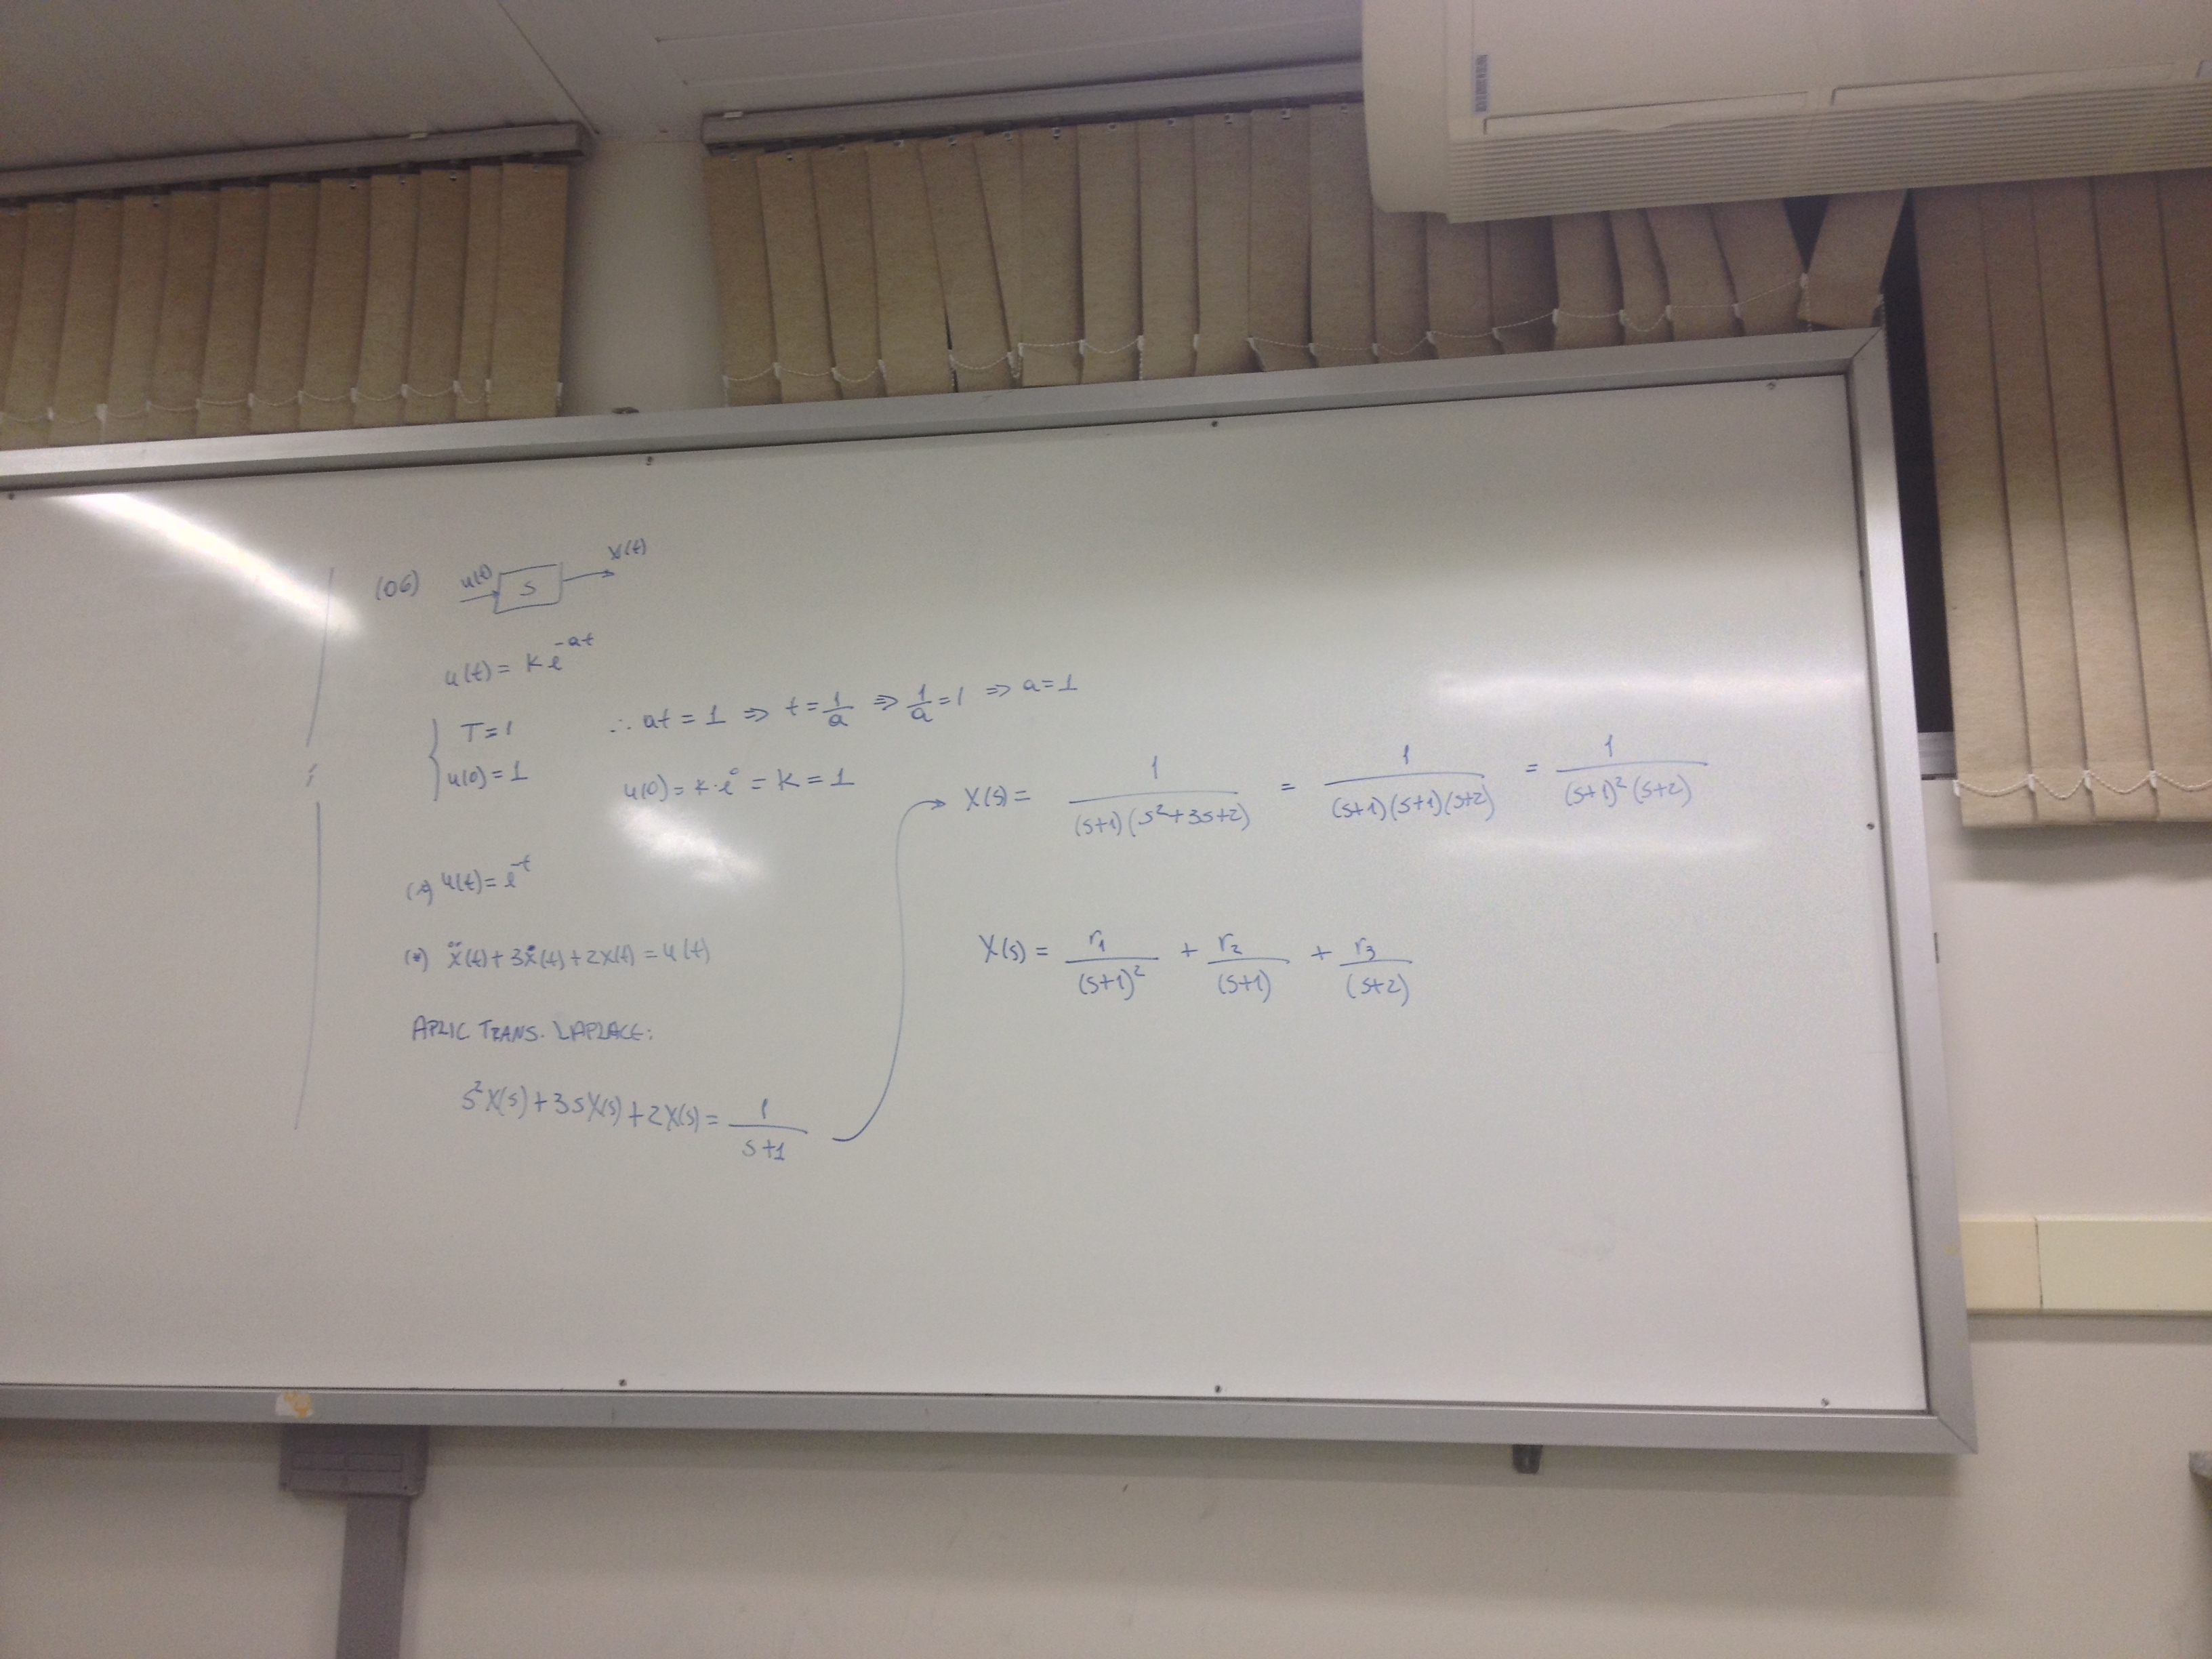 (06) u(t) S x(t)
u(t) = k e^{-at}
T = 1 ∴ at = 1 ⇒ t = 1/a ⇒ 1/a = 1 ⇒ a = 1
u(0) = 1 u(0) = k·e^0 = k = 1
u(t) = e^{-t}
(*) ẍ(t) + 3ẋ(t) + 2x(t) = u(t)
APLIC TRANS. LAPLACE:
s²X(s) + 3sX(s) + 2X(s) = 1/(s+1)
X(s) = 1/((s+1)(s²+3s+2)) = 1/((s+1)(s+1)(s+2)) = 1/((s+1)²(s+2))
X(s) = r₁/(s+1)² + r₂/(s+1) + r₃/(s+2)